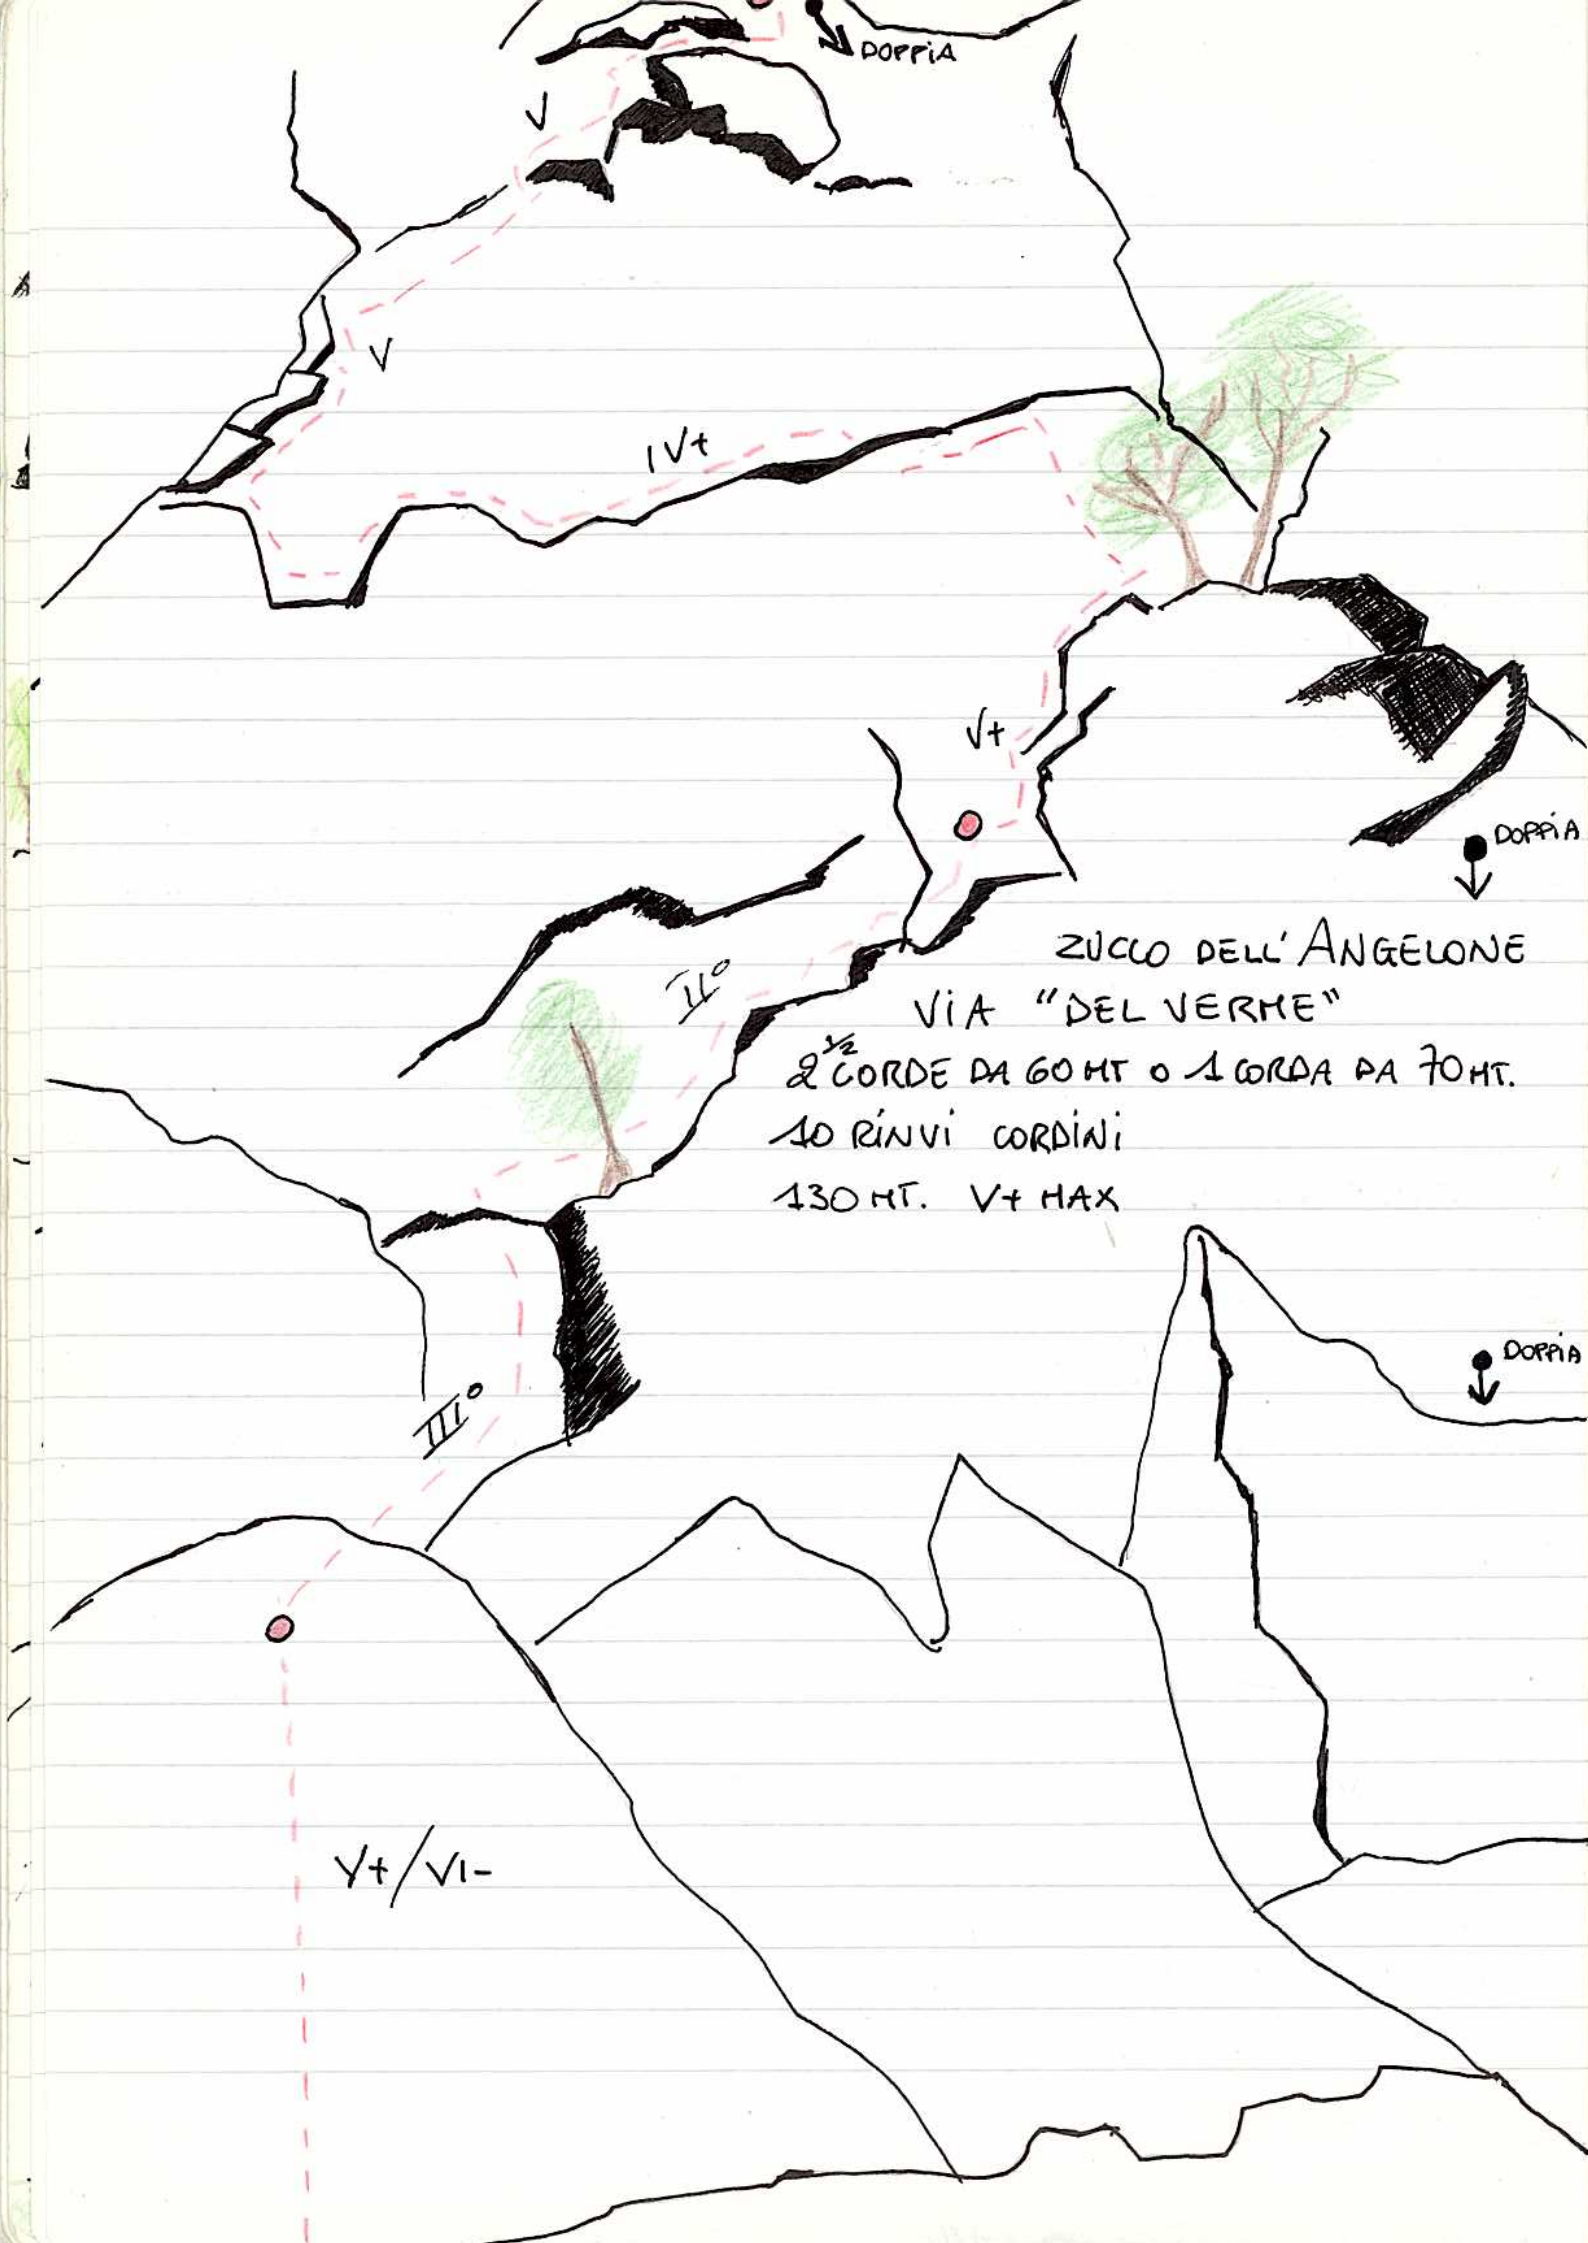 DOPPiA
V
V
IV+
V+
DOPPiA
ZUCCO DELL'ANGELONE
ViA "DEL VERME"
2 1/2 CORDE DA 60 MT O 1 CORDA DA 70 MT.
10 RiNVi CORDiNi
130 MT. V+ MAX
II°
DOPPiA
III°
V+/VI-